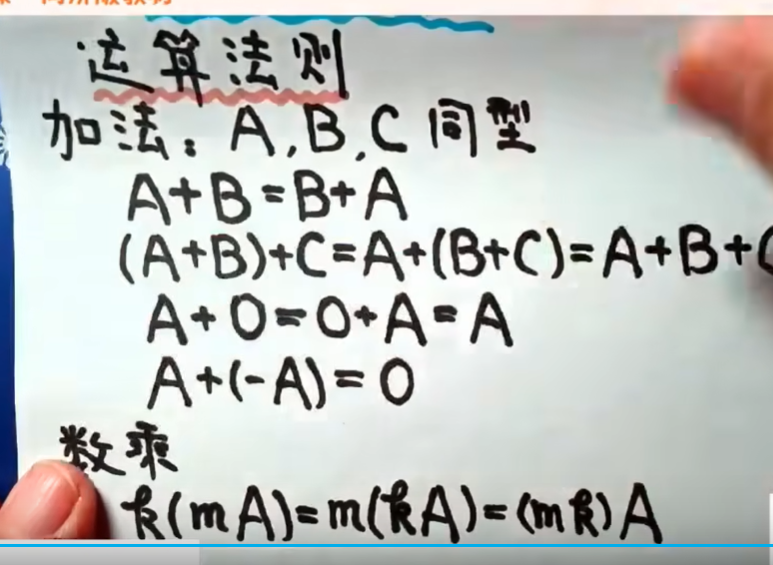 运算法则
加法：A,B,C 同型
A+B=B+A
(A+B)+C=A+(B+C)=A+B+C
A+0=0+A=A
A+(-A)=0
数乘
k(mA)=m(kA)=(mk)A